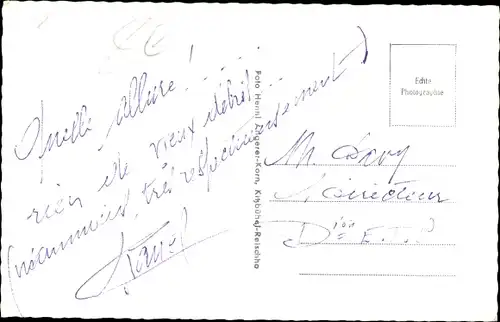 Quelle allure! .....
rien de vieux débris ...
(néanmoins très respectueusement)
Foto Henni Angerer-Korn, Kitzbühel-Reischho
Echte
Photographie
M.
Directeur
Dion E.T.